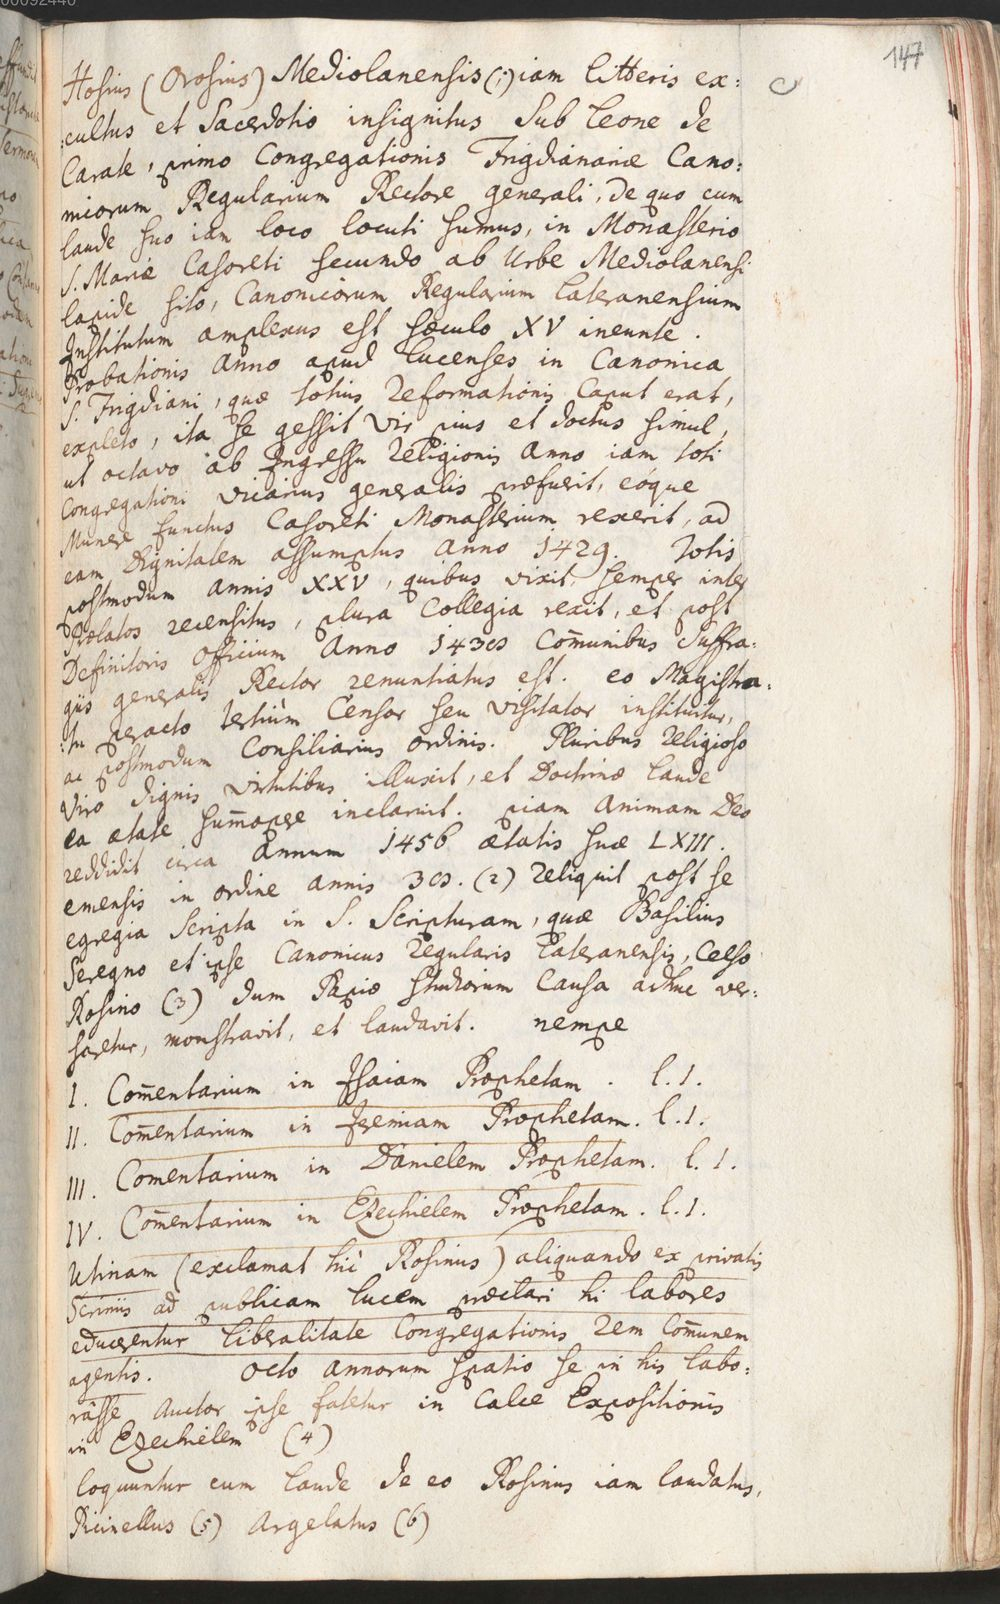 147
Hosius (Orosius) Mediolanensis (1) iam litteris ex:
:cultus et Sacerdotio insignitus Sub Leone de
Carate, primo Congregationis Frigdianariæ Cano:
nicorum Regularium Rectore generali, de quo cum
laude suo iam loco locuti sumus, in Monasterio
S. Mariæ Casoreti secundo ab Urbe Mediolanensi
lapide sito, Canonicorum Regularium Lateranensium
Institutum amplexus est sæculo XV ineunte.
Probationis Anno apud Lucenses in Canonica
S. Frigdiani, quæ totius Reformationis Caput erat,
expleto, ita se gessit Vir pius et doctus simul,
ut octavo ab Ingressu Religionis Anno iam toti
Congregationi Vicarius generalis præfuerit, eóque
Munere functus Casoreti Monasterium rexerit, ad
eam Dignitatem assumptus Anno 1429. Totis
postmodum Annis XXV, quibus vixit, semper inter
Prælatos recensitus, plura Collegia rexit, et post
Definitoris Officium Anno 1438 Com̄unibus Suffra:
giis generalis Rector renuntiatus est. eo Magistra:
:tu peracto tertiùm Censor seu Visitator instituitur,
ac postmodum Consiliarius Ordinis. Pluribus Religioso
Viro dignis Virtutibus illuxit, et Doctrinæ laude
ea ætate sum̄opere inclaruit. piam Animam Deo
reddidit circa Annum 1456 ætatis suæ LXIII.
emensis in ordine annis 38. (2) Reliquit post se
egregia Scripta in S. Scripturam, quæ Basilius
Seregno et ipse Canonicus Regularis Lateranensis, Celso
Rosino (3) dum Papiæ studiorum Causa adhuc ver:
saretur, monstravit, et laudavit. nempe
I. Com̄entarium in Isaiam Prophetam. l.1.
II. Com̄entarium in Jeremiam Prophetam. l.1.
III. Comentarium in Danielem Prophetam. l.1.
IV. Com̄entarium in Ezechielem Prophetam. l.1.
Utinam (exclamat hìc Rosinus) aliquando ex privatis
Scriniis ad publicam lucem præclari hi labores
educerentur liberalitate Congregationis rem Com̄unem
agentis. Octo annorum spatio se in his labo:
rasse Auctor ipse fatetur in Calce Expositionis
in Ezechielem (4)
loquuntur cum laude de eo Rosinus iam laudatus,
Picinellus (5) Argelatus (6)